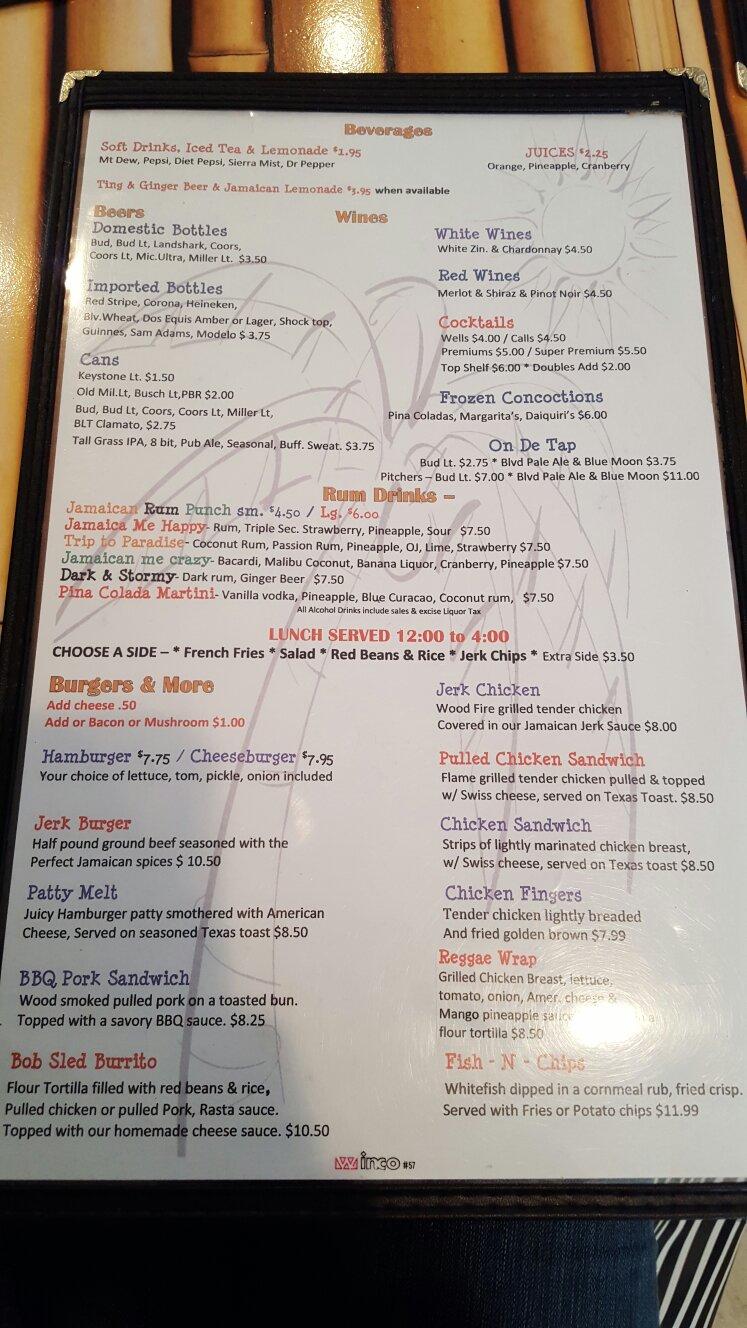 Beverages
Soft Drinks, Iced Tea & Lemonade $1.95
Mt Dew, Pepsi, Diet Pepsi, Sierra Mist, Dr Pepper
JUICES $2.25
Orange, Pineapple, Cranberry
Ting & Ginger Beer & Jamaican Lemonade $3.95 when available
Beers
Domestic Bottles
Bud, Bud Lt, Landshark, Coors,
Coors Lt, Mic.Ultra, Miller Lt. $3.50
Imported Bottles
Red Stripe, Corona, Heineken,
Blv.Wheat, Dos Equis Amber or Lager, Shock top,
Guinnes, Sam Adams, Modelo $ 3.75
Cans
Keystone Lt. $1.50
Old Mil.Lt, Busch Lt,PBR $2.00
Bud, Bud Lt, Coors, Coors Lt, Miller Lt,
BLT Clamato, $2.75
Tall Grass IPA, 8 bit, Pub Ale, Seasonal, Buff. Sweat. $3.75
Wines
White Wines
White Zin. & Chardonnay $4.50
Red Wines
Merlot & Shiraz & Pinot Noir $4.50
Cocktails
Wells $4.00 / Calls $4.50
Premiums $5.00 / Super Premium $5.50
Top Shelf $6.00 * Doubles Add $2.00
Frozen Concoctions
Pina Coladas, Margarita's, Daiquiri's $6.00
On De Tap
Bud Lt. $2.75 * Blvd Pale Ale & Blue Moon $3.75
Pitchers – Bud Lt. $7.00 * Blvd Pale Ale & Blue Moon $11.00
Rum Drinks –
Jamaican Rum Punch sm. $4.50 / Lg. $6.00
Jamaica Me Happy- Rum, Triple Sec. Strawberry, Pineapple, Sour $7.50
Trip to Paradise- Coconut Rum, Passion Rum, Pineapple, OJ, Lime, Strawberry $7.50
Jamaican me crazy- Bacardi, Malibu Coconut, Banana Liquor, Cranberry, Pineapple $7.50
Dark & Stormy- Dark rum, Ginger Beer $7.50
Pina Colada Martini- Vanilla vodka, Pineapple, Blue Curacao, Coconut rum, $7.50
All Alcohol Drinks include sales & excise Liquor Tax
LUNCH SERVED 12:00 to 4:00
CHOOSE A SIDE – * French Fries * Salad * Red Beans & Rice * Jerk Chips * Extra Side $3.50
Burgers & More
Add cheese .50
Add or Bacon or Mushroom $1.00
Hamburger $7.75 / Cheeseburger $7.95
Your choice of lettuce, tom, pickle, onion included
Jerk Burger
Half pound ground beef seasoned with the
Perfect Jamaican spices $ 10.50
Patty Melt
Juicy Hamburger patty smothered with American
Cheese, Served on seasoned Texas toast $8.50
BBQ Pork Sandwich
Wood smoked pulled pork on a toasted bun.
Topped with a savory BBQ sauce. $8.25
Bob Sled Burrito
Flour Tortilla filled with red beans & rice,
Pulled chicken or pulled Pork, Rasta sauce.
Topped with our homemade cheese sauce. $10.50
Jerk Chicken
Wood Fire grilled tender chicken
Covered in our Jamaican Jerk Sauce $8.00
Pulled Chicken Sandwich
Flame grilled tender chicken pulled & topped
w/ Swiss cheese, served on Texas Toast. $8.50
Chicken Sandwich
Strips of lightly marinated chicken breast,
w/ Swiss cheese, served on Texas toast $8.50
Chicken Fingers
Tender chicken lightly breaded
And fried golden brown $7.99
Reggae Wrap
Grilled Chicken Breast, lettuce,
tomato, onion, Amer. cheese &
Mango pineapple sauce
flour tortilla $8.50
Fish - N - Chips
Whitefish dipped in a cornmeal rub, fried crisp.
Served with Fries or Potato chips $11.99
Winco #57